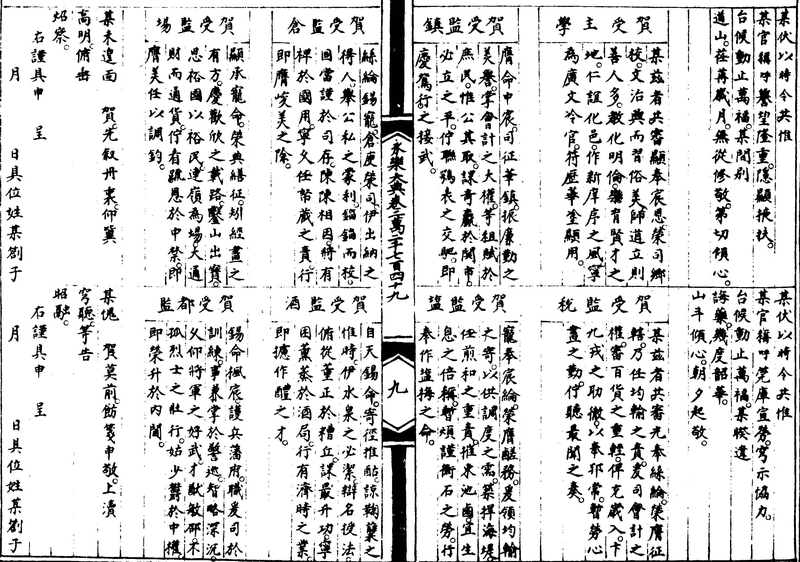 某伏以時令共惟
某官稱呼譽望隆重隱顯掖扶
台候動止萬福某間別
道山荏苒歲月無從修敬第切傾心
賀受主學
某茲者共審顯奉宸恩榮司鄉
校文治興而習俗美師道立則
善人多教化明倫樂育賢才之
地仁誼化邑作新庠序之風寧
為廣文冷官待歷華塗顯用
賀受監鎮
膺命中宸司征華鎮振廉勤之
美譽掌會計之大權等租賦於
庶民惟公其取課奇贏於闤市
必立之平佇聯鶚表之交馳即
慶鴛行之接武
永樂大典卷二萬二千七百四十九
賀受監倉
絲綸錫寵倉庾榮司伊出納之
得人舉公私之蒙利錙銖而校
固當謹於司存陳陳相因將有
裨於國用寧久任幣藏之責行
即膺峻美之除
賀受監場
顯承寵命榮典繕征矧經畫之
有方慶歡欣之載路鑿山出寶
思裕國以裕民連嶺為場大通
財而通貨佇看疏恩於中禁即
膺美任以調鈞
某未遑面 賀先敘丹衷仰冀
高明俯垂
炤察
右謹具申 呈
月 日具位姓某劄子
某伏以時令共惟
某官稱呼筦庫宣勞穹示協力
台候動止萬福某睽違
誨藥幾度韶華
山斗傾心朝夕起敬
賀受監稅
某茲者共審光奉絲綸榮膺征
轄乃任均輸之責爰司會計之
權審百貨之重輕俾充歲入下
九戎之助徹以奉邦常暫勞心
畫之勤佇聽最聞之奏
賀受監鹽
寵奉宸綸榮膺醝務爰領均輸
之寄以供調度之需築捍海堤
任煎和之重責摧東池鹵宜生
息之倍稱暫煩謹衡石之勞行
奉作鹽梅之命
九
賀受監酒
自天錫命寄徑推酤諒麴糵之
惟時伊水泉之必潔辯名役法
俯從董正於糟丘課最升功寧
困薰蒸於酒局行有濟時之業
即擴作醴之才
賀受都監
錫命楓宸護兵藩府職爰司於
訓練事兼掌於警巡智略深沉
久仰將軍之好武才猷敏邵不
孤烈士之壯行姑少鬱於中權
即榮升於內閣
某愧 賀莫前飭箋申敬上瀆
穹聽等告
昭融
右謹具申 呈
月 日具位姓某劄子